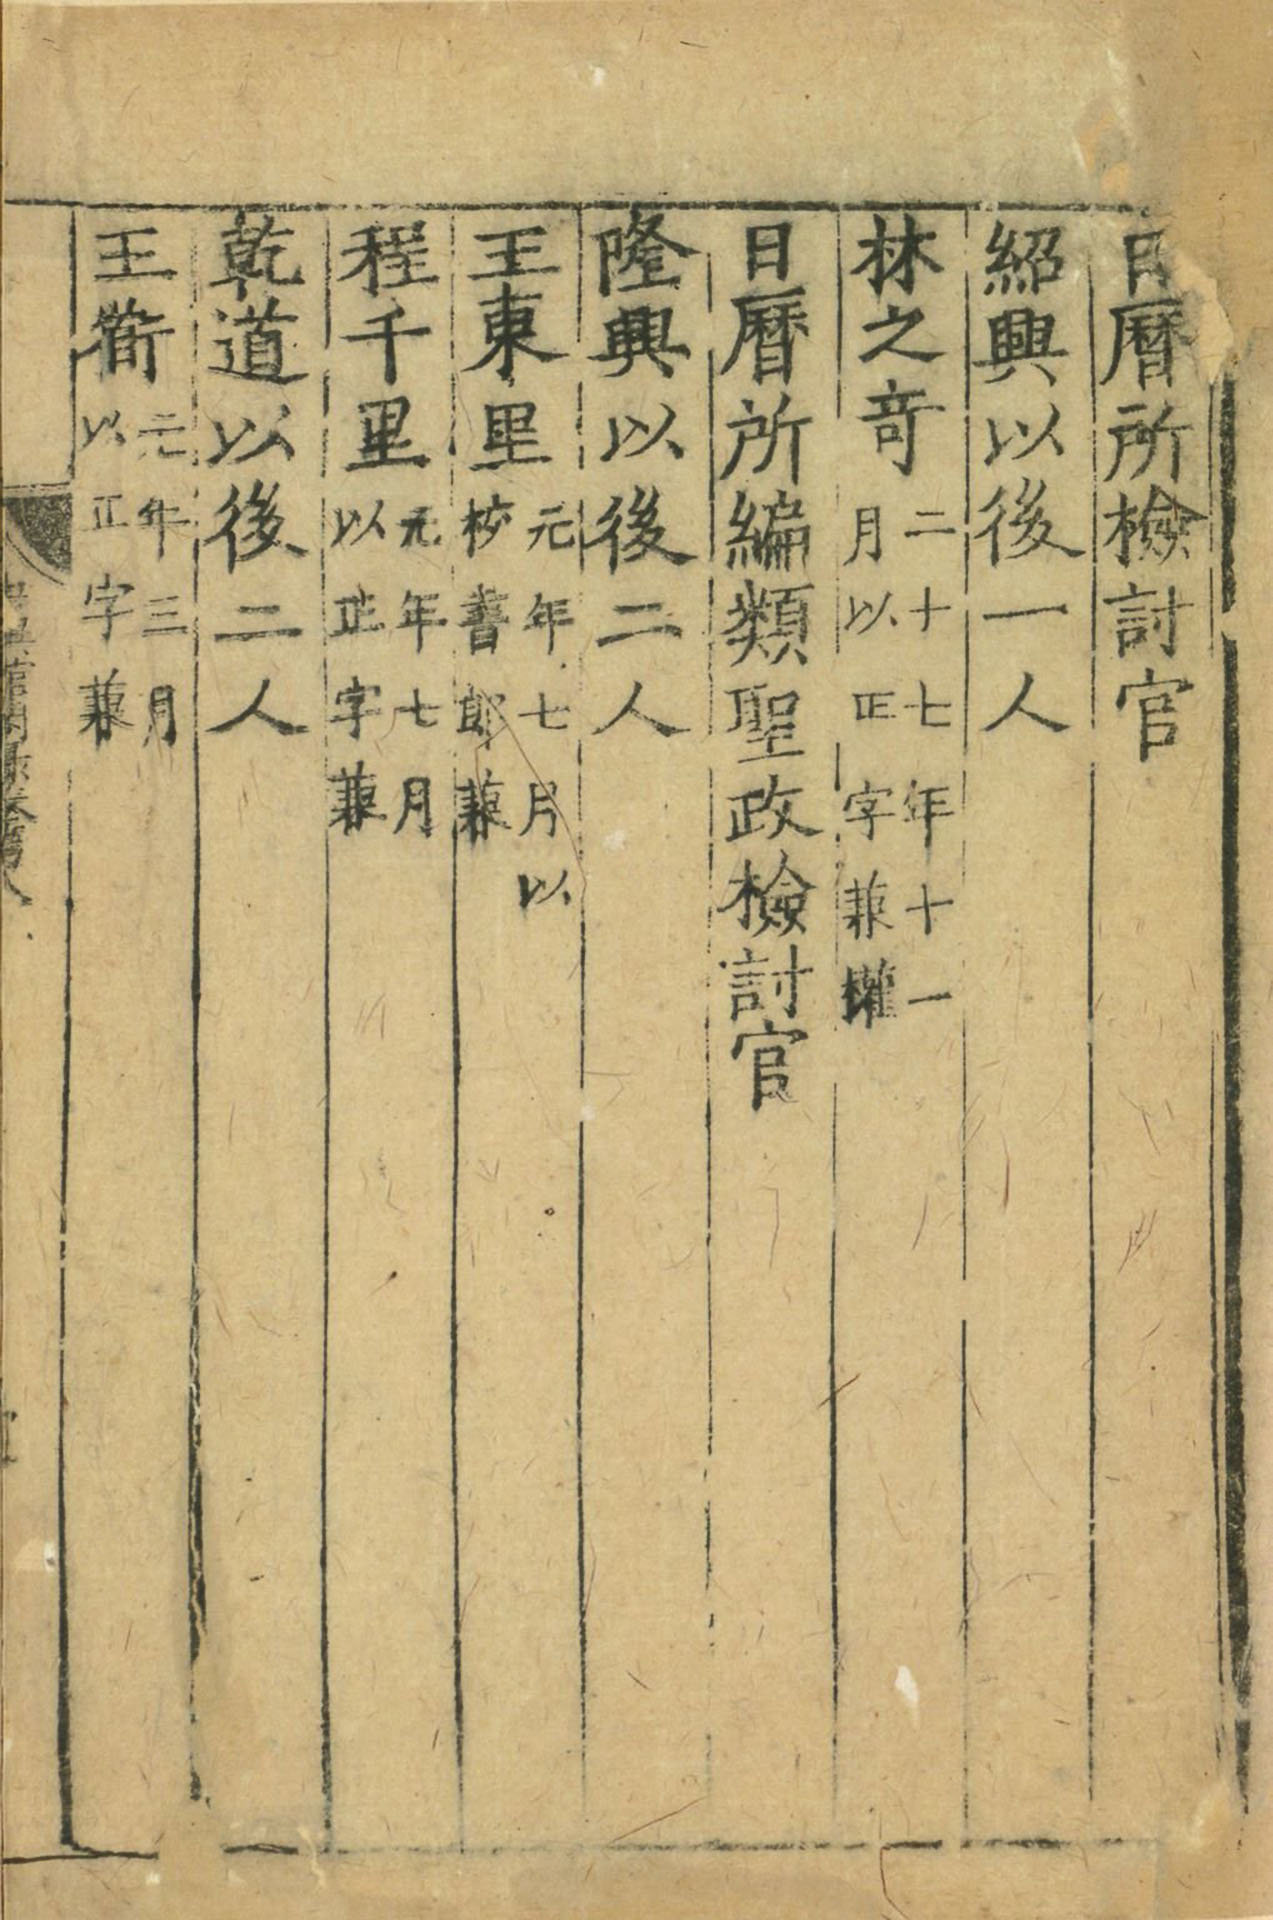 日曆所檢討官
紹興以後一人
林之竒二十七年十一月以正字兼權
日曆所編類聖政檢討官
隆興以後二人
王東里元年七月以校書郎兼
程千里元年七月以正字兼
乾道以後二人
王衜元年三月以正字兼